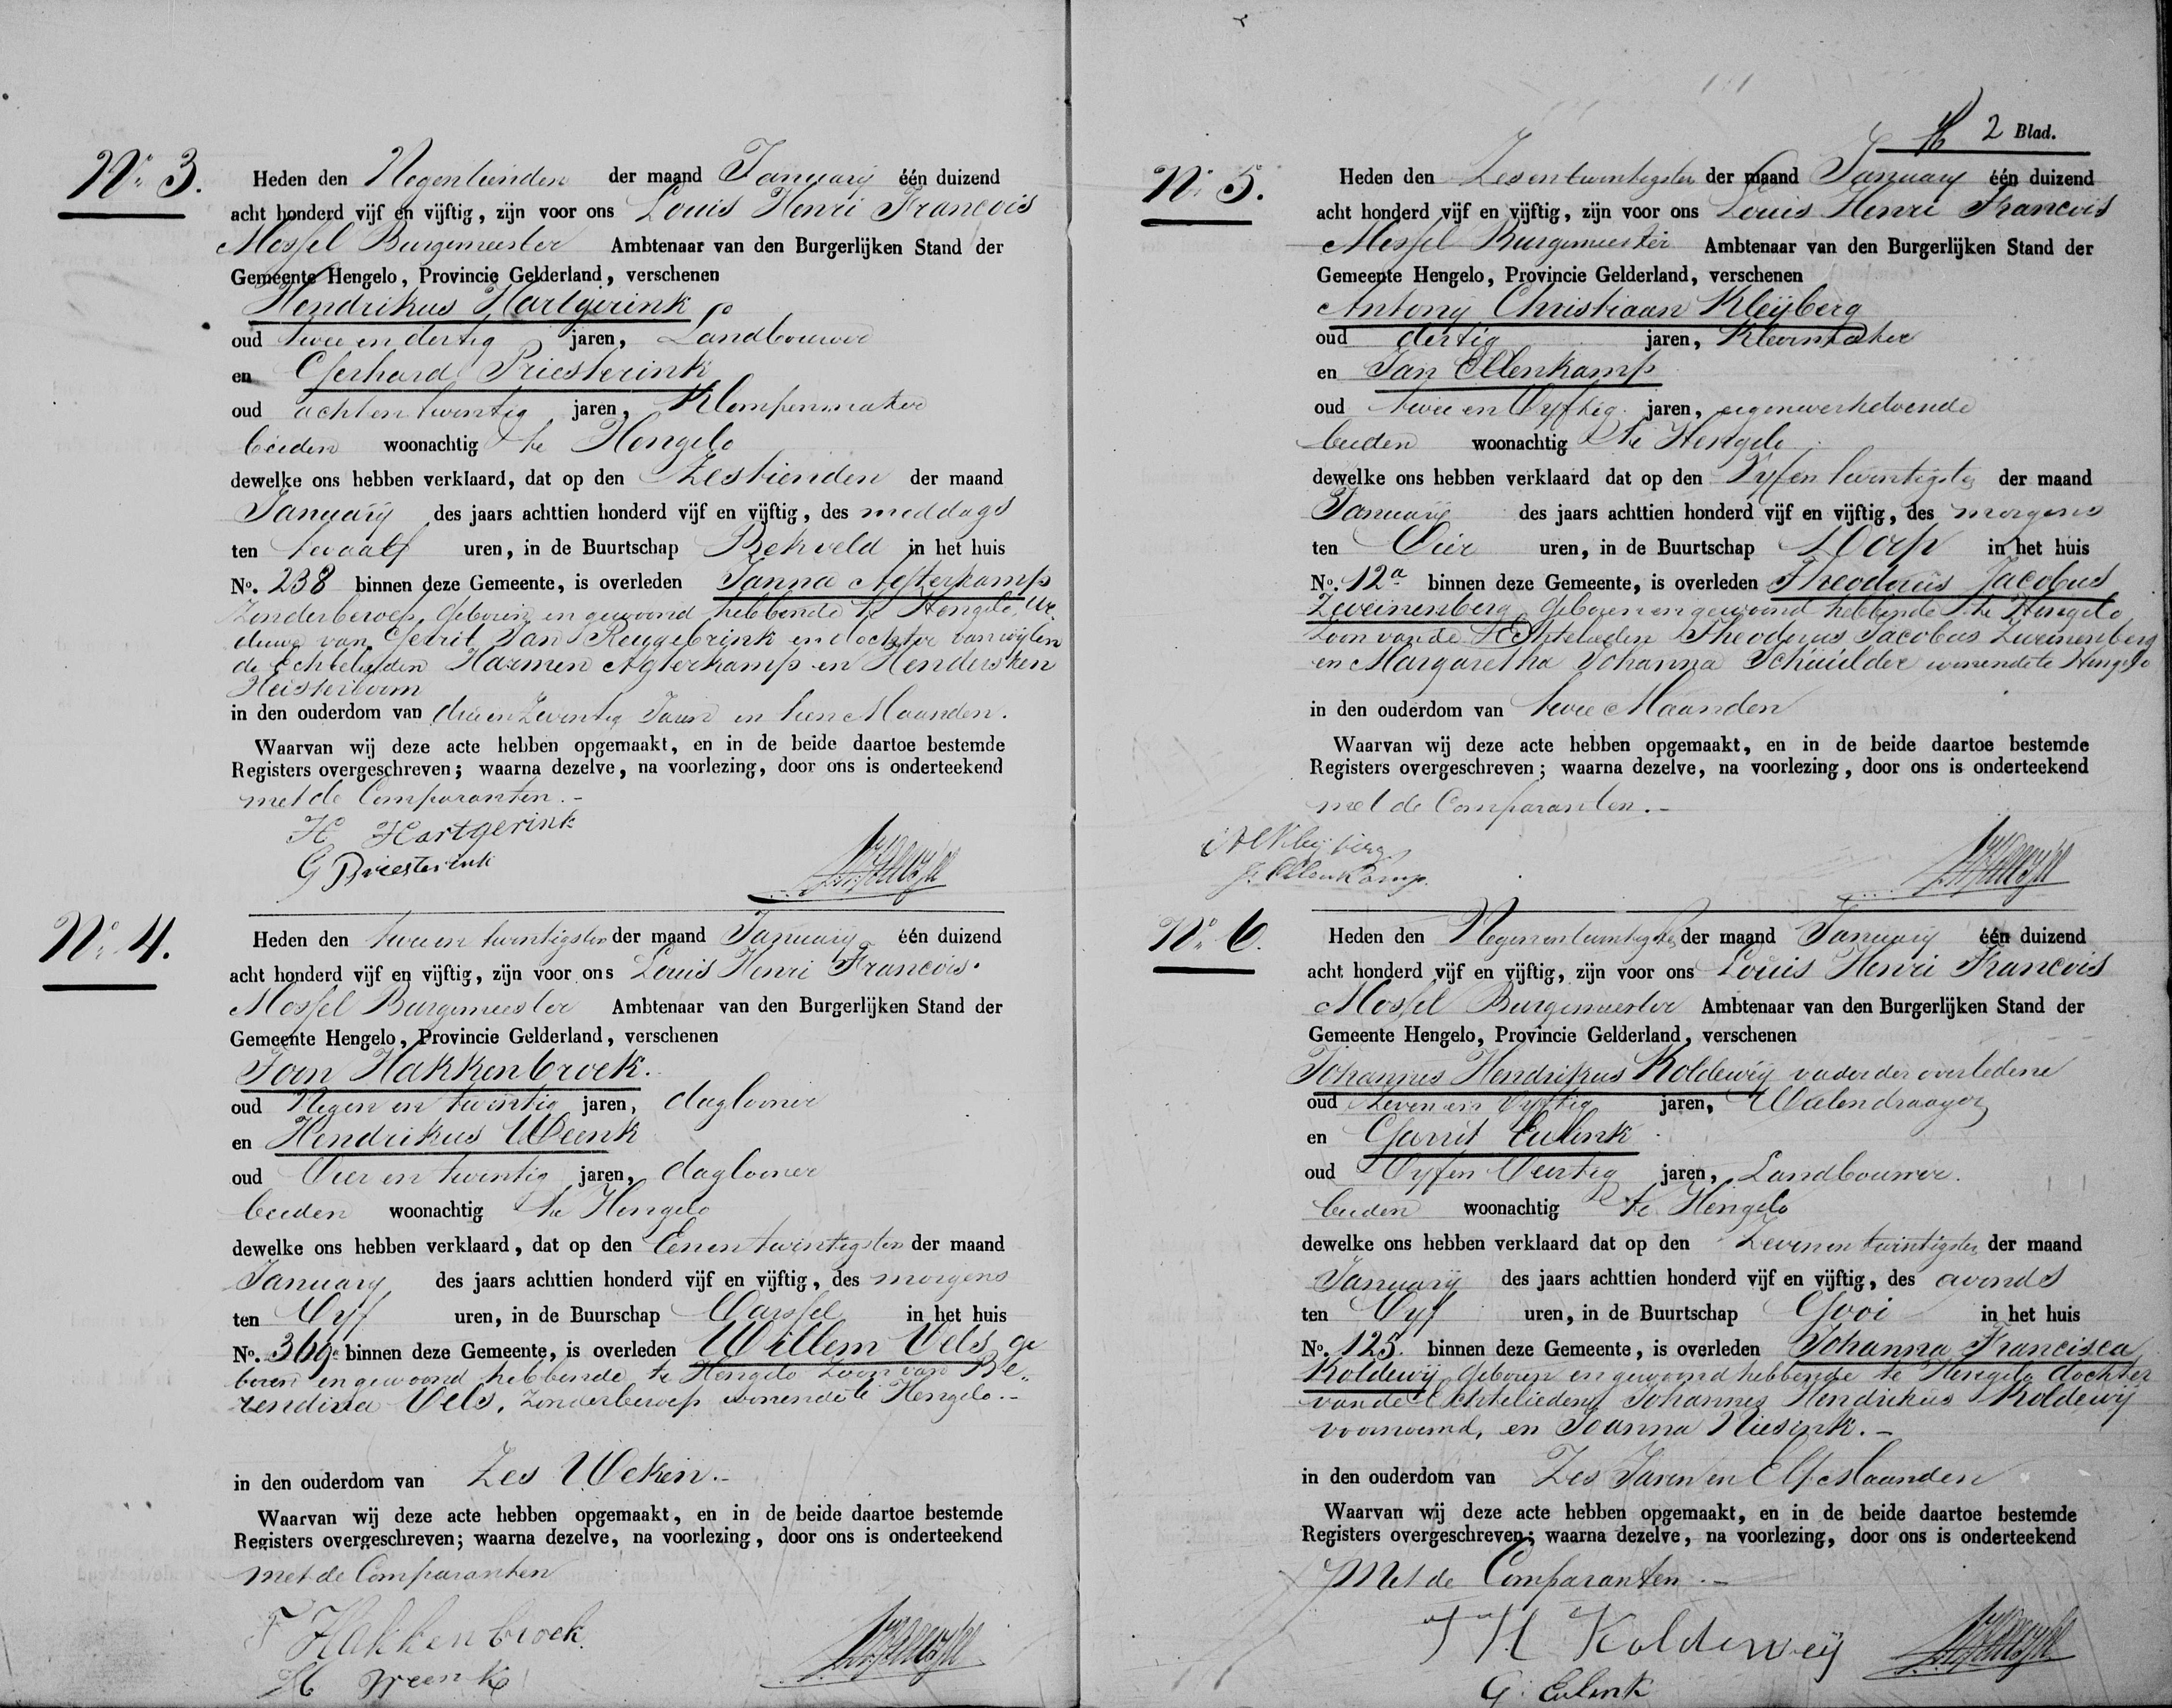 No. 3.
Heden den Negentienden der maand January één duizend
acht honderd vijf en vijftig, zijn voor ons Louis Henri Francois
Mossel Burgemeester Ambtenaar van den Burgerlijken Stand der
Gemeente Hengelo, Provincie Gelderland, verschenen
Hendrikus Hartgerink
oud twee en dertig jaren, Landbouwer
en Gerhard Priesterink
oud achtentwintig jaren, Klompenmaker
beiden woonachtig te Hengelo
dewelke ons hebben verklaard, dat op den Zestienden der maand
Januarij des jaars achttien honderd vijf en vijftig, des middags
ten twaalf uren, in de Buurtschap Bekveld in het huis
No. 238 binnen deze Gemeente, is overleden Janna Agterkamp
Zonderberoep, Geboren en gewoond hebbende te Hengelo, We-
duwe van Gerrit Jan Reugebrink en dochter van wijlen
de Echtelieden Harmen Agterkamp en Hendersken
Heisterboom
in den ouderdom van drieenzeventig Jaren en tien Maanden.
Waarvan wij deze acte hebben opgemaakt, en in de beide daartoe bestemde
Registers overgeschreven; waarna dezelve, na voorlezing, door ons is onderteekend
met de Comparanten.-
H Hartgerink
G Priesterink
No. 4.
Heden den tweeentwintigsten der maand January één duizend
acht honderd vijf en vijftig, zijn voor ons Louis Henri Francois
Mossel Burgemeester Ambtenaar van den Burgerlijken Stand der
Gemeente Hengelo, Provincie Gelderland, verschenen
Hakkenbroek.
oud Negen en twintig jaren, daglooner
en Hendrikus Weenk
oud Vier en twintig jaren, daglooner
beiden woonachtig te Hengelo
dewelke ons hebben verklaard, dat op den Eenentwintigsten der maand
January des jaars achttien honderd vijf en vijftig, des morgens
ten Vyf uren, in de Buurschap Varssel in het huis
No. 369 binnen deze Gemeente, is overleden Willem Vels ge
boren en gewoond hebbende te Hengelo Zoon van Be-
rendina Vels, Zonderberoep wonende te Hengelo.-
in den ouderdom van Zes Weken.-
Waarvan wij deze acte hebben opgemaakt, en in de beide daartoe bestemde
Registers overgeschreven; waarna dezelve, na voorlezing, door ons is onderteekend
met de Comparanten
Hakkenbroek
H Weenk
2 Blad.
No. 5.
Heden den Zesentwintigsten der maand January één duizend
acht honderd vijf en vijftig, zijn voor ons Louis Henri Francois
Mossel Burgemeester Ambtenaar van den Burgerlijken Stand der
Gemeente Hengelo, Provincie Gelderland, verschenen
Antony Christiaan Kleijberg
oud dertig jaren, Kleermaker
en Jan Ellenkamp
oud twee en Vyftig jaren, eigenwerkdoende
beiden woonachtig te Hengelo
dewelke ons hebben verklaard dat op den Vyfentwintigsten der maand
Januarij des jaars achttien honderd vijf en vijftig, des morgens
ten Vier uren, in de Buurtschap Dorp in het huis
No. 12a binnen deze Gemeente, is overleden Theodorus Jacobus
Zweinenberg Geboren en gewoond hebbende te Hengelo
Zoon van de Echtelieden Theodorus Jacobus Zweinenberg
en Margaretha Johanna Schuilder wonende te Hengelo
in den ouderdom van twee Maanden
Waarvan wij deze acte hebben opgemaakt, en in de beide daartoe bestemde
Registers overgeschreven; waarna dezelve, na voorlezing, door ons is onderteekend
met de Comparanten.-
A C Kleijberg
J. Ellenkamp.
No. 6.
Heden den Negenentwintigsten der maand January één duizend
acht honderd vijf en vijftig, zijn voor ons Louis Henri Francois
Mossel Burgemeester Ambtenaar van den Burgerlijken Stand der
Gemeente Hengelo, Provincie Gelderland, verschenen
Johannes Hendrikus Koldewij vader der overledene
oud Zeven en Vyftig jaren,
en Garrit Eulink
oud Vyfen Veertig jaren, Landbouwer.
beiden woonachtig te Hengelo
dewelke ons hebben verklaard dat op den Zevenentwintigsten der maand
Januarij des jaars achttien honderd vijf en vijftig, des avonds
ten Vyf uren, in de Buurtschap Gooi in het huis
No. 125. binnen deze Gemeente, is overleden Johanna Francisca
Koldewij Geboren en gewoond hebbende te Hengelo dochter
van de Echtelieden Johannes Hendrikus Koldewij
voornoemd, en Joanna Niesink.-
in den ouderdom van Zes Jaren en Elf Maanden
Waarvan wij deze acte hebben opgemaakt, en in de beide daartoe bestemde
Registers overgeschreven; waarna dezelve, na voorlezing, door ons is onderteekend
Met de Comparanten.-
J H Koldeweij
G. Eulink